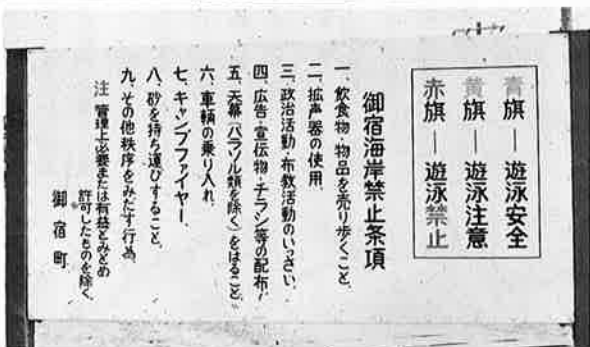 青旗―遊泳安全
黄旗―遊泳注意
赤旗―遊泳禁止
御宿海岸禁止条項
一、飲食物・物品を売り歩くこと、
二、拡声器の使用、
三、政治活動・布教活動のいっさい、
四、広告・宣伝物・チラシ等の配布、
五、天幕(パラソル類を除く)をはること、
六、車輌の乗り入れ、
七、キャンプファイヤー、
八、砂を持ち運びすること、
九、その他秩序をみだす行為、
注 管理上必要または有益とみとめ
許可したものを除く
御宿町